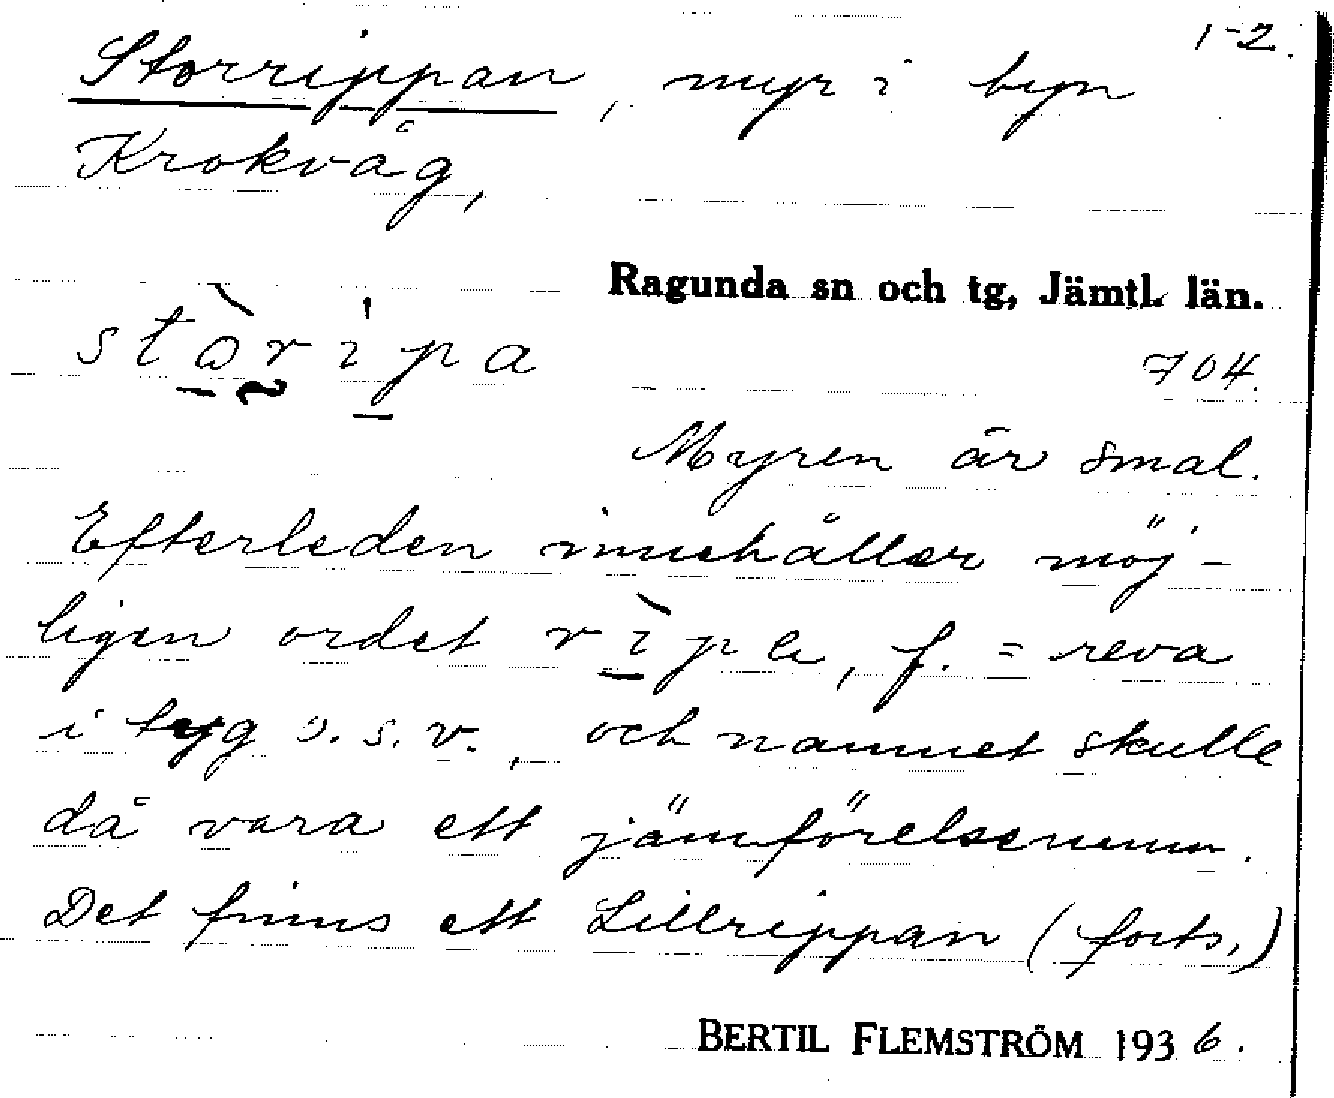 1-2.
Storrippan, myr i byn
Krokvåg,
Ragunda sn och tg, Jämtl. län.
stòrípa
704.
Myren är smal.
Efterleden innehåller möj-
ligen ordet rìpa, f. = reva
i tyg o.s.v., och namnet skulle
då vara ett jämförelsenamn.
Det finns ett Lillrippan (forts.)
BERTIL FLEMSTRÖM 1936.